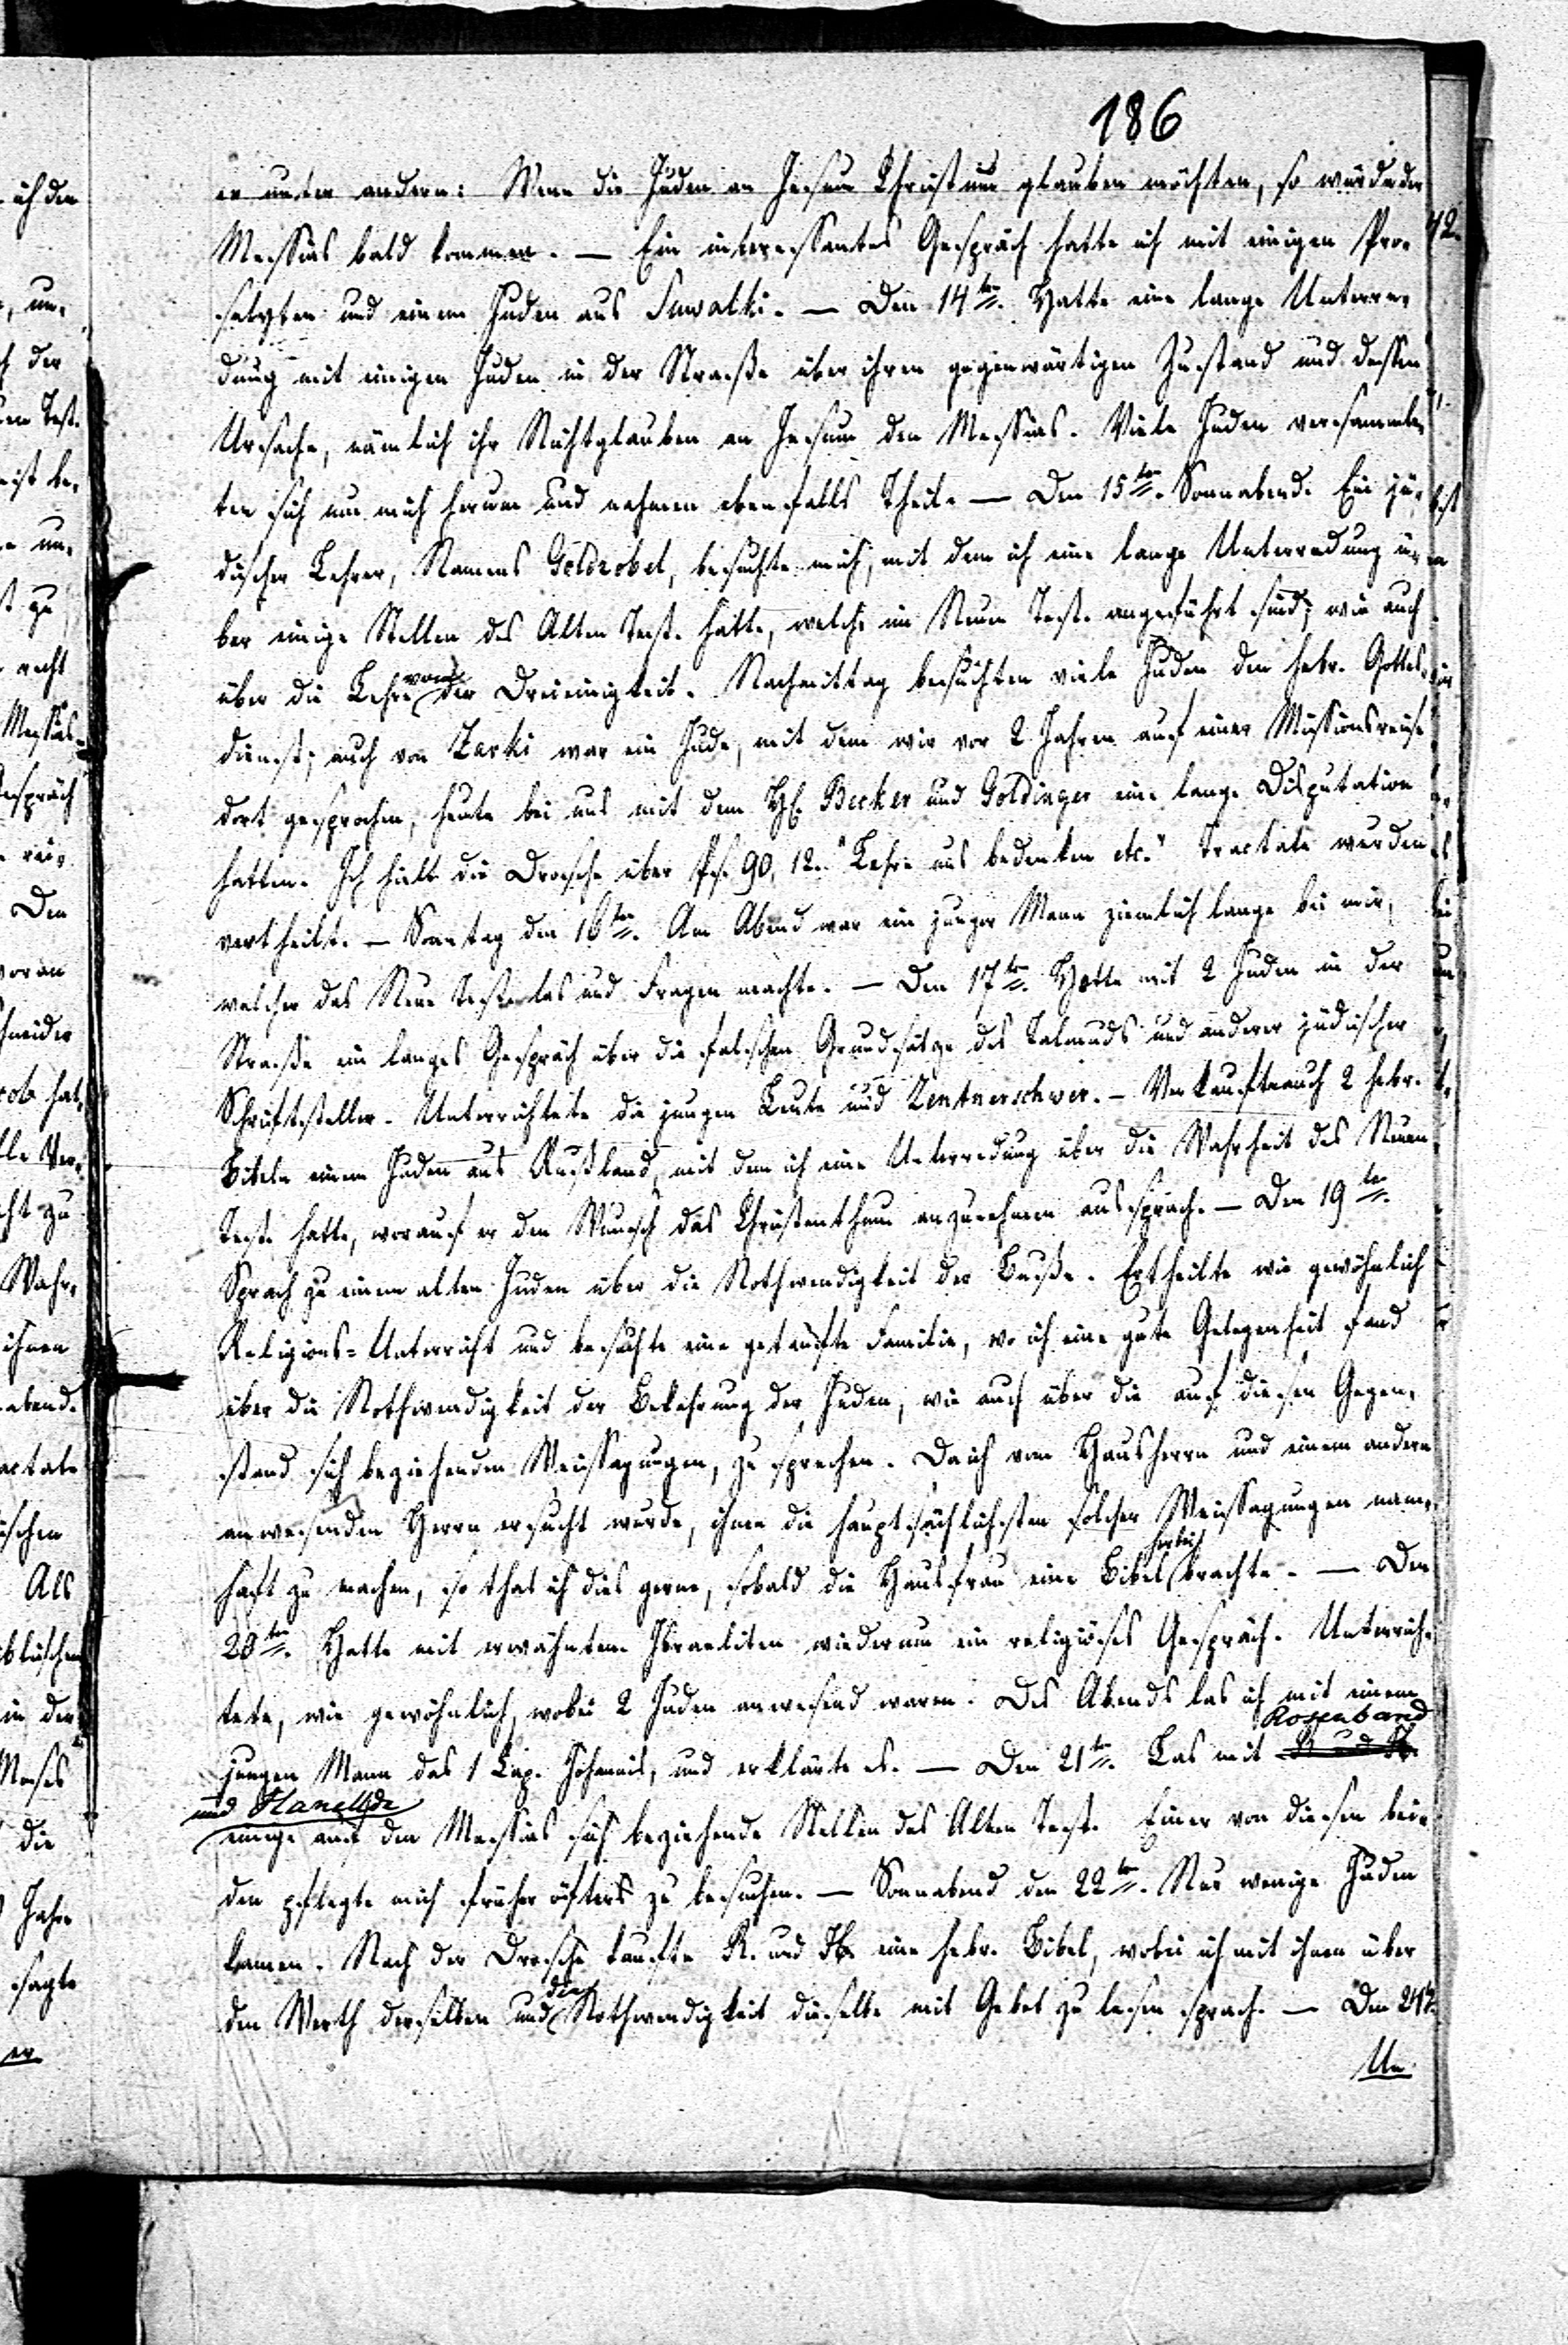 186
er unter andern: Wenn die Juden an Jesum Christum glauben möchten, so würde der
Messias bald kommen. — Ein interessantes Gespräch hatte ich mit einigen Pro-
selyten und einem Juden aus Suwalki. — Den 14ten. Hatte eine lange Unterre-
dung mit einigen Juden in der Straße über ihren gegenwärtigen Zustand und dessen
Ursache, nämlich ihr Nichtglauben an Jesum den Messias. Viele Juden versammle-
ten sich um mich herum und nahmen ebenfalls Theil. — Den 15ten. Sonnabend. Ein jü-
discher Lehrer, Namens Goldzobel, besuchte mich, mit dem ich eine lange Unterredung ü-
ber einige Stellen des Alten Test. hatte, welche im Neuen Test. angeführt sind; wie auch
über die Lehre von der Dreieinigkeit. Nachmittag besuchten viele Juden den hebr. Gottes-
dienst; auch von Zarki war ein Jude, mit dem wir vor 2 Jahren auf einer Missionsreise
dort gesprochen, heute bei uns mit dem H. Becker und Goldinger eine lange Disputation
hatten. Ich hielt die Drosche über Ps. 90, 12. "Lehre uns bedenken etc." Tractate wurden
vertheilt. — Sontag den 16ten. Am Abend war ein junger Mann ziemlich lange bei mir,
welcher das Neue Test. las und Fragen machte. — Den 17ten. Hatte mit 2 Juden in der
Straße ein langes Gespräch über die falschen Grundsätze des Talmuds und anderer jüdischer
Schriftsteller. Unterrichtete die jungen Leute und Zentnerschwer. — Verkaufte auch 2 hebr.
Bibeln einem Juden aus Rußland, mit dem ich eine Unterredung über die Wahrheit des Neuen
Test. hatte, worauf er den Wunsch das Christenthum anzunehmen aussprach. — Den 19ten.
Sprach zu einem alten Juden über die Nothwendigkeit der Buße. Ertheilte wie gewöhnlich
Religions-Unterricht und besuchte eine getaufte Familie, wo ich eine gute Gelegenheit fand
über die Nothwendigkeit der Bekehrung der Juden, wie auch über die auf diesen Gegen-
stand sich beziehenden Weissagungen, zu sprechen. Da ich vom Hausherrn und einem andern
anwesenden Herrn ersucht wurde, ihnen die hauptsächlichsten solcher Weissagungen nam-
haft zu machen, so that ich dies gerne, sobald die Hausfrau eine Bibel herbei brachte. — Den
20ten. Hatte mit erwähntem Israeliten wiederum ein religiöses Gespräch. Unterrich-
tete, wie gewöhnlich, wobei 2 Juden anwesend waren. Des Abends las ich mit einem
jungen Mann das 1 Cap. Johannis, und erklärte es. — Den 21ten. Las mit Rosenband
und
einige auf den Messias sich beziehende Stellen des Alten Test. Einer von diesen bei-
den pflegte mich früher öfters zu besuchen. — Sonnabend den 22ten. Nur wenige Juden
kamen. Nach der Drosche kaufte R. und eine hebr. Bibel, wobei ich mit ihnen über
den Werth derselben und die Nothwendigkeit dieselbe mit Gebet zu lesen sprach. — Den 24t.
Un